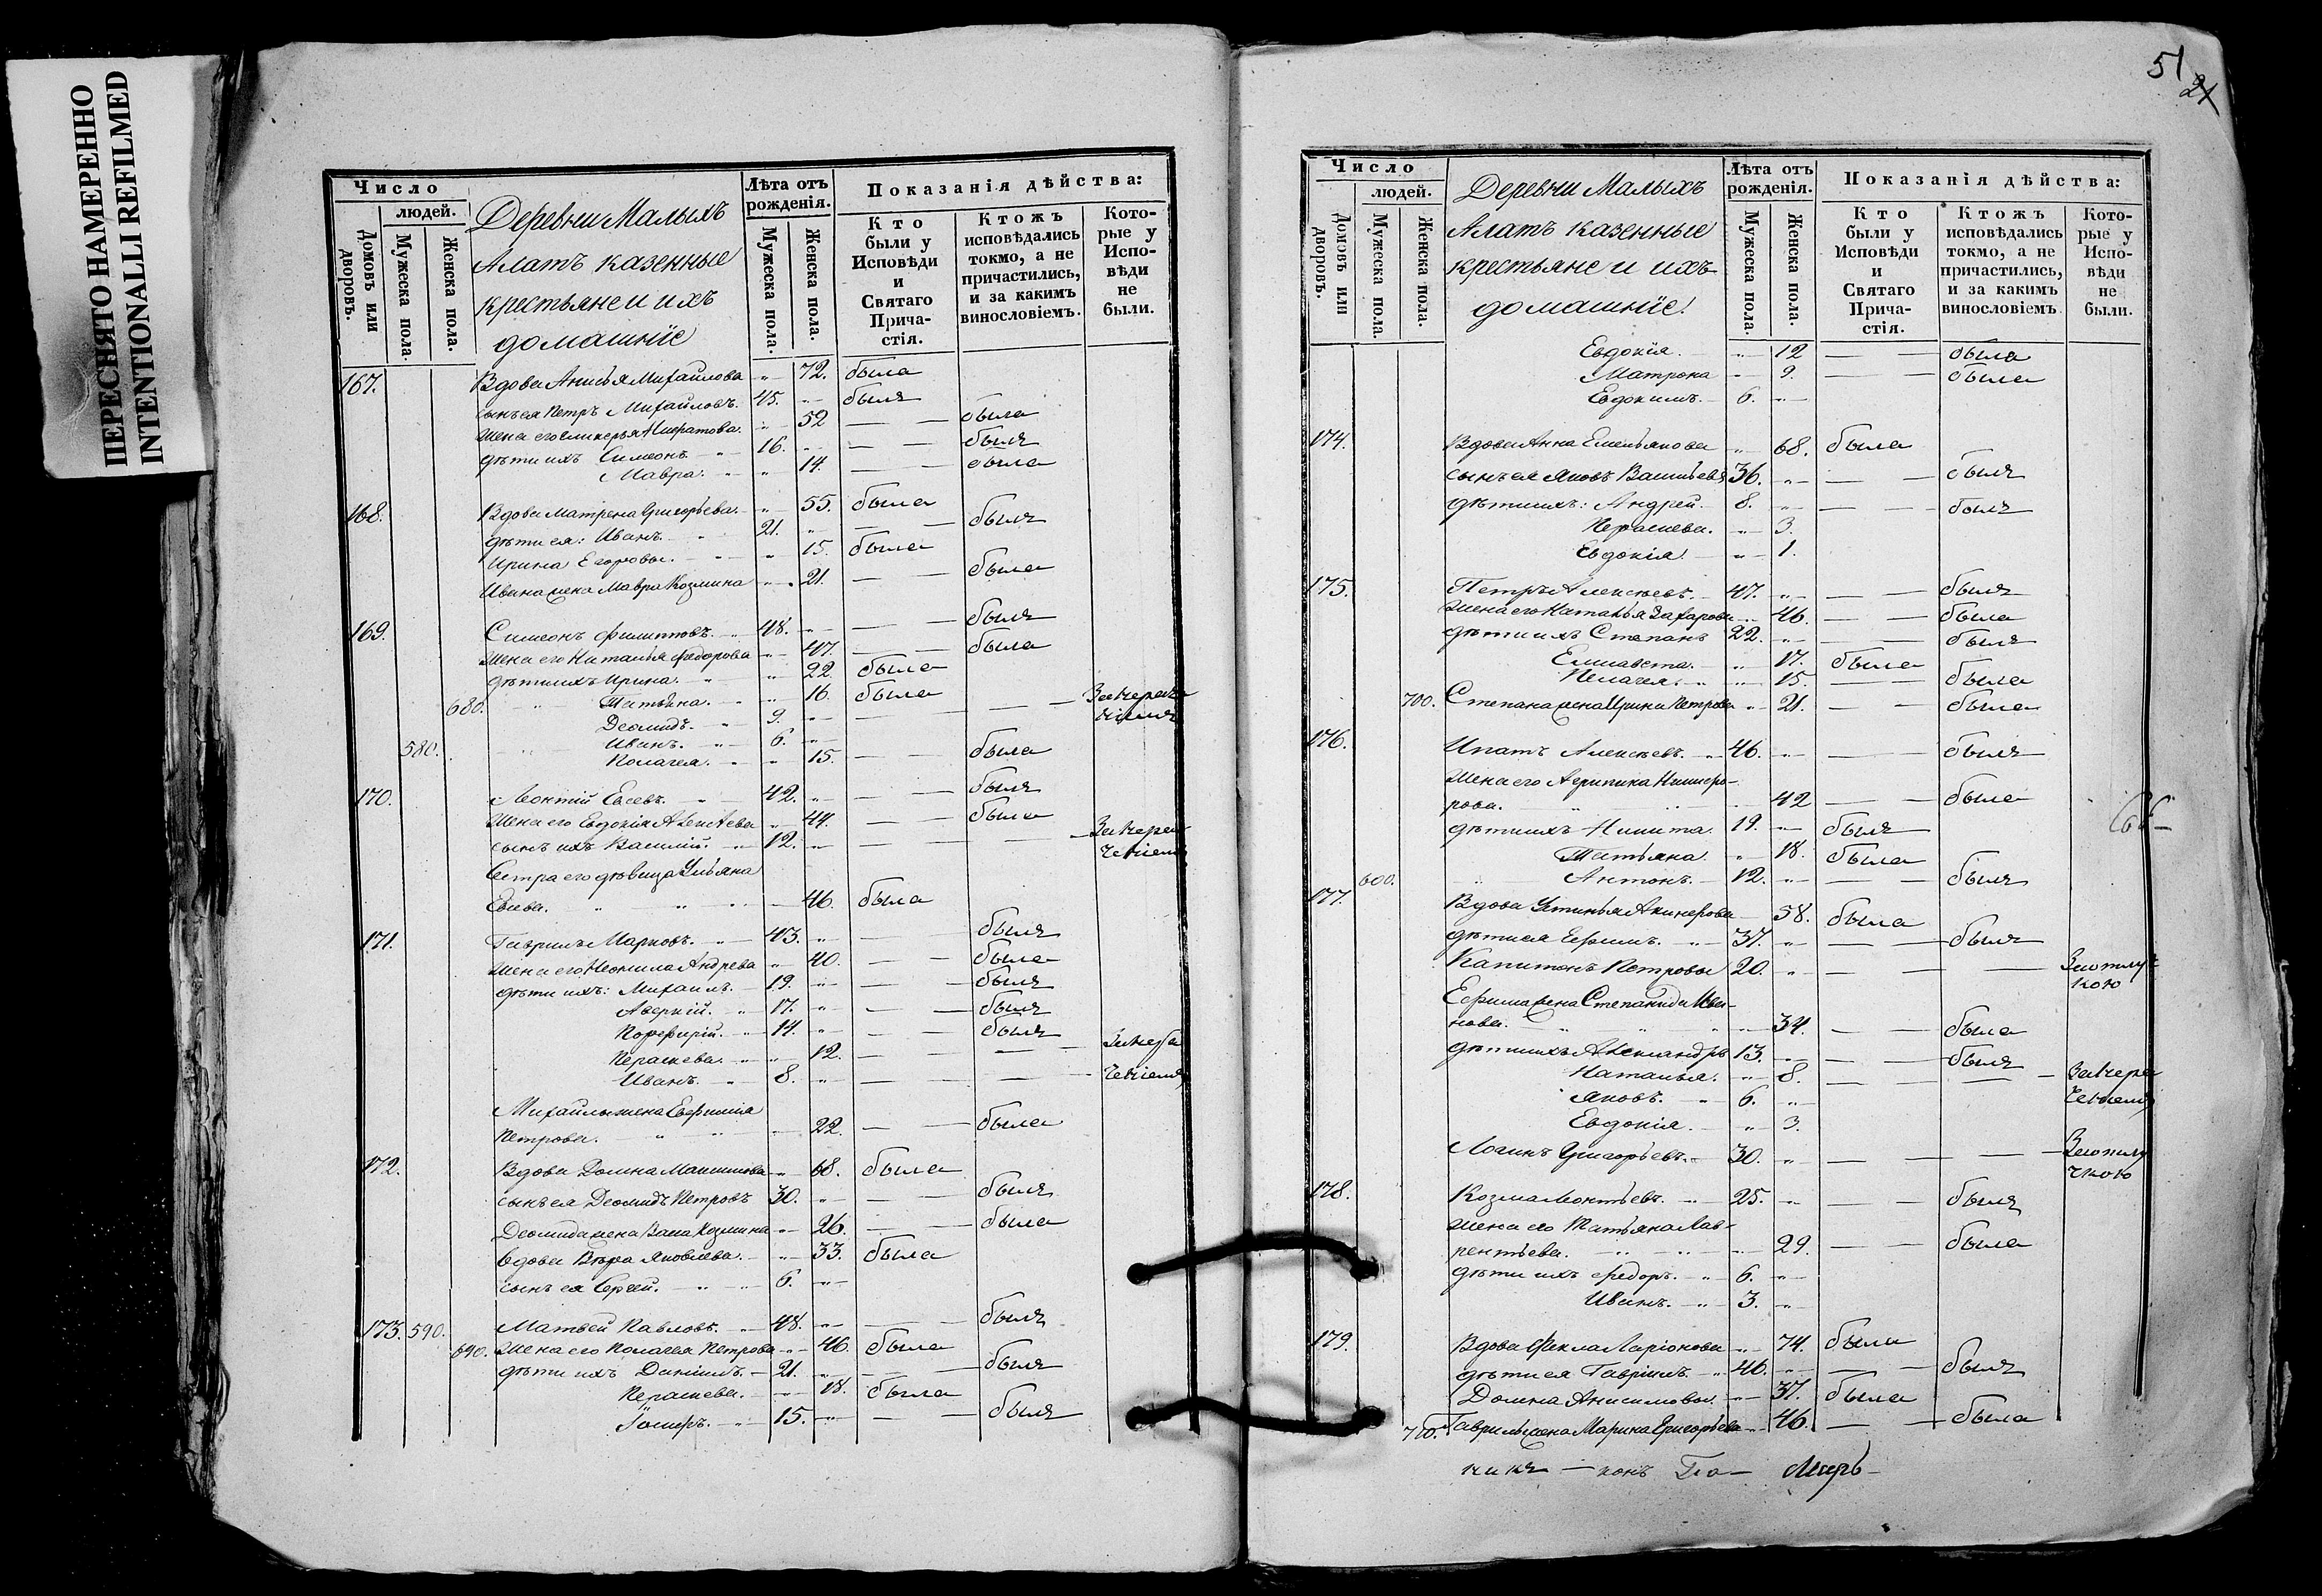 ПЕРЕСНЯТО НАМЕРЕННО
INTENTIONALLI REFILMED
Число
людей.
Домовъ или дворовъ.
Мужеска пола.
Женска пола.
Деревни Малыхъ
Алатъ казенные
крестьяне и ихъ
домашніе
Лѣта отъ рожденія.
Мужеска пола.
Женска пола.
Показанія дѣйства:
Кто были у Исповѣди и Святаго Прича-стія.
Ктожъ исповѣдались токмо, а не причастились, и за какимъ винословіемъ.
Кото-рые у Испо-вѣди не были.
167. Вдова Анисья Михайлова " 72. была
сынъ ея Петръ Михайловъ. 45. " былъ
жена его Гликерья " 52 — — была
дѣти ихъ Симеонъ 16. " — — былъ
Мавра. " 14. — — была
168. Вдова Матрена Григорьева. " 55. была
дѣти ея: Иванъ 21. " — — былъ
Ирина Егоровы. " 15. была
Ивана жена Мавра Козмина " 21. — — была
169. Симеонъ Филипповъ. 48. " — — былъ
жена его Наталья Федорова " 47. — — была
дѣти ихъ Ирина. " 22. была
680. Татьяна. " 16. была
Деомидъ. 9. " — — — Замалолѣ
580. Иванъ. 6. "
Пелагея. " 15. — — была
170. Леонтій Евсевъ. 42. " — — былъ
жена его Евдокія Алексѣева " 44. — — была
сынъ ихъ Василій. 12. " — — —
Сестра его дѣвица Ульяна
Евсева. " 46. была
171. Гаврилъ Марковъ. 43. " — — былъ
жена его Неонила Андрева " 40. — — была
дѣти ихъ: Михаилъ. 19. " — — былъ
Аверкій. 17. " — — былъ
Порфирій. 14. " — — былъ
Параскева. " 12. — — —
Иванъ. 8. " — — —
Михайлы жена Евфимія
Петрова. " 22. — — была
172. Вдова Домна Максимова " 68. была
сынъ ея Деомидъ Петровъ 30. " — — былъ
Деомида жена Васа Козмина " 26. — — была
Вдова Вѣра Яковлева. " 33. была
сынъ ея Сергей. 6. "
173. 590. Матвей Павловъ. 48. " — — былъ
690. Жена его Пелагея Петрова " 46. была
дѣти ихъ Даніилъ. 21. " — — былъ
Параскева. " 18. была
15. " — — былъ
51
21
Число
людей.
Домовъ или дворовъ.
Мужеска пола.
Женска пола.
Деревни Малыхъ
Алатъ казенные
крестьяне и ихъ
домашніе.
Лѣта отъ рожденія.
Мужеска пола.
Женска пола.
Показанія дѣйства:
Кто были у Исповѣди и Святаго Прича-стія.
Ктожъ исповѣдались токмо, а не причастились, и за какимъ винословіемъ
Кото-рые у Испо-вѣди не были.
Евдокія. " 12 — — была
Матрона " 9. — — была
Евдокимъ. 6. "
174. Вдова Анна Емельянова " 68. была
сынъ ея Яковъ Васильевъ 36. " — — былъ
дѣти ихъ: Андрей. 8. " — — былъ
Параскева. " 3.
Евдокія. " 1.
175. Петръ Алексѣевъ. 47. " — — былъ
Жена его Наталья Захарова " 46. — — была
дѣти ихъ Степанъ 22. " — — былъ
Елисавета. " 17. была
Пелагея. " 15. — — была
700. Степана жена Ирина Петрова " 21. — — была
176. Ипатъ Алексѣевъ. 46. " — — былъ
Жена его Агрипина Никифо-
рова. " 42 — — была
дѣти ихъ Никита. 19. " былъ
Татьяна. " 18. была
600. Антонъ. 12. " — — былъ
177. Вдова Устинья " 58. была
дѣти ея Ефимъ. 37. " — — былъ
Капитонъ Петровы 20. " — — — Заотлуч
кою
Ефима жена Степанида Ива-
нова. " 34. — — была
дѣти ихъ Александръ 13. " — — былъ
Наталья. " 8. — — —
Яковъ. 6. "
Евдокія. " 3.
Логинъ Григорьевъ. 30. " — — — Заотлу
чкою
178. Козма Леонтьевъ. 25. " — — былъ
жена его Татьяна Лав-
рентьева. " 29. — — была
дѣти ихъ Федоръ. 6. "
Иванъ. 3. "
179. Вдова Фекла Ларіонова " 74. была
дѣти ея Гавріилъ. 46. " — — былъ
Домна Анисимовы. " 37. была
710. Гаврилы жена Марина Григорьева " 46. — — была